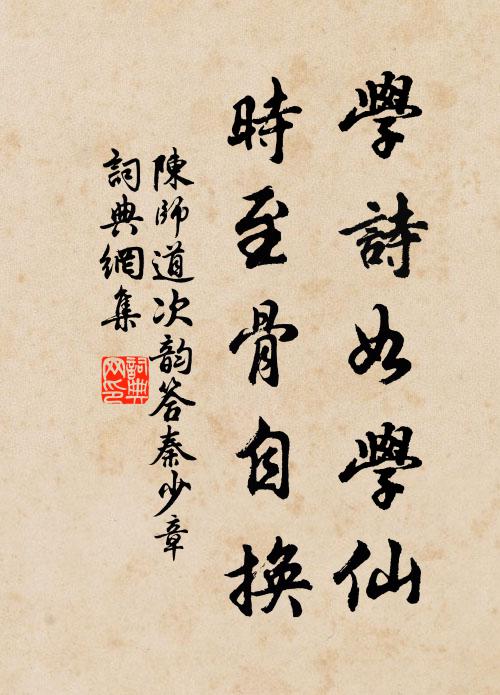 學詩如學仙
時至骨自換
陳師道次韵答秦少章
詞典網集
詞典網印